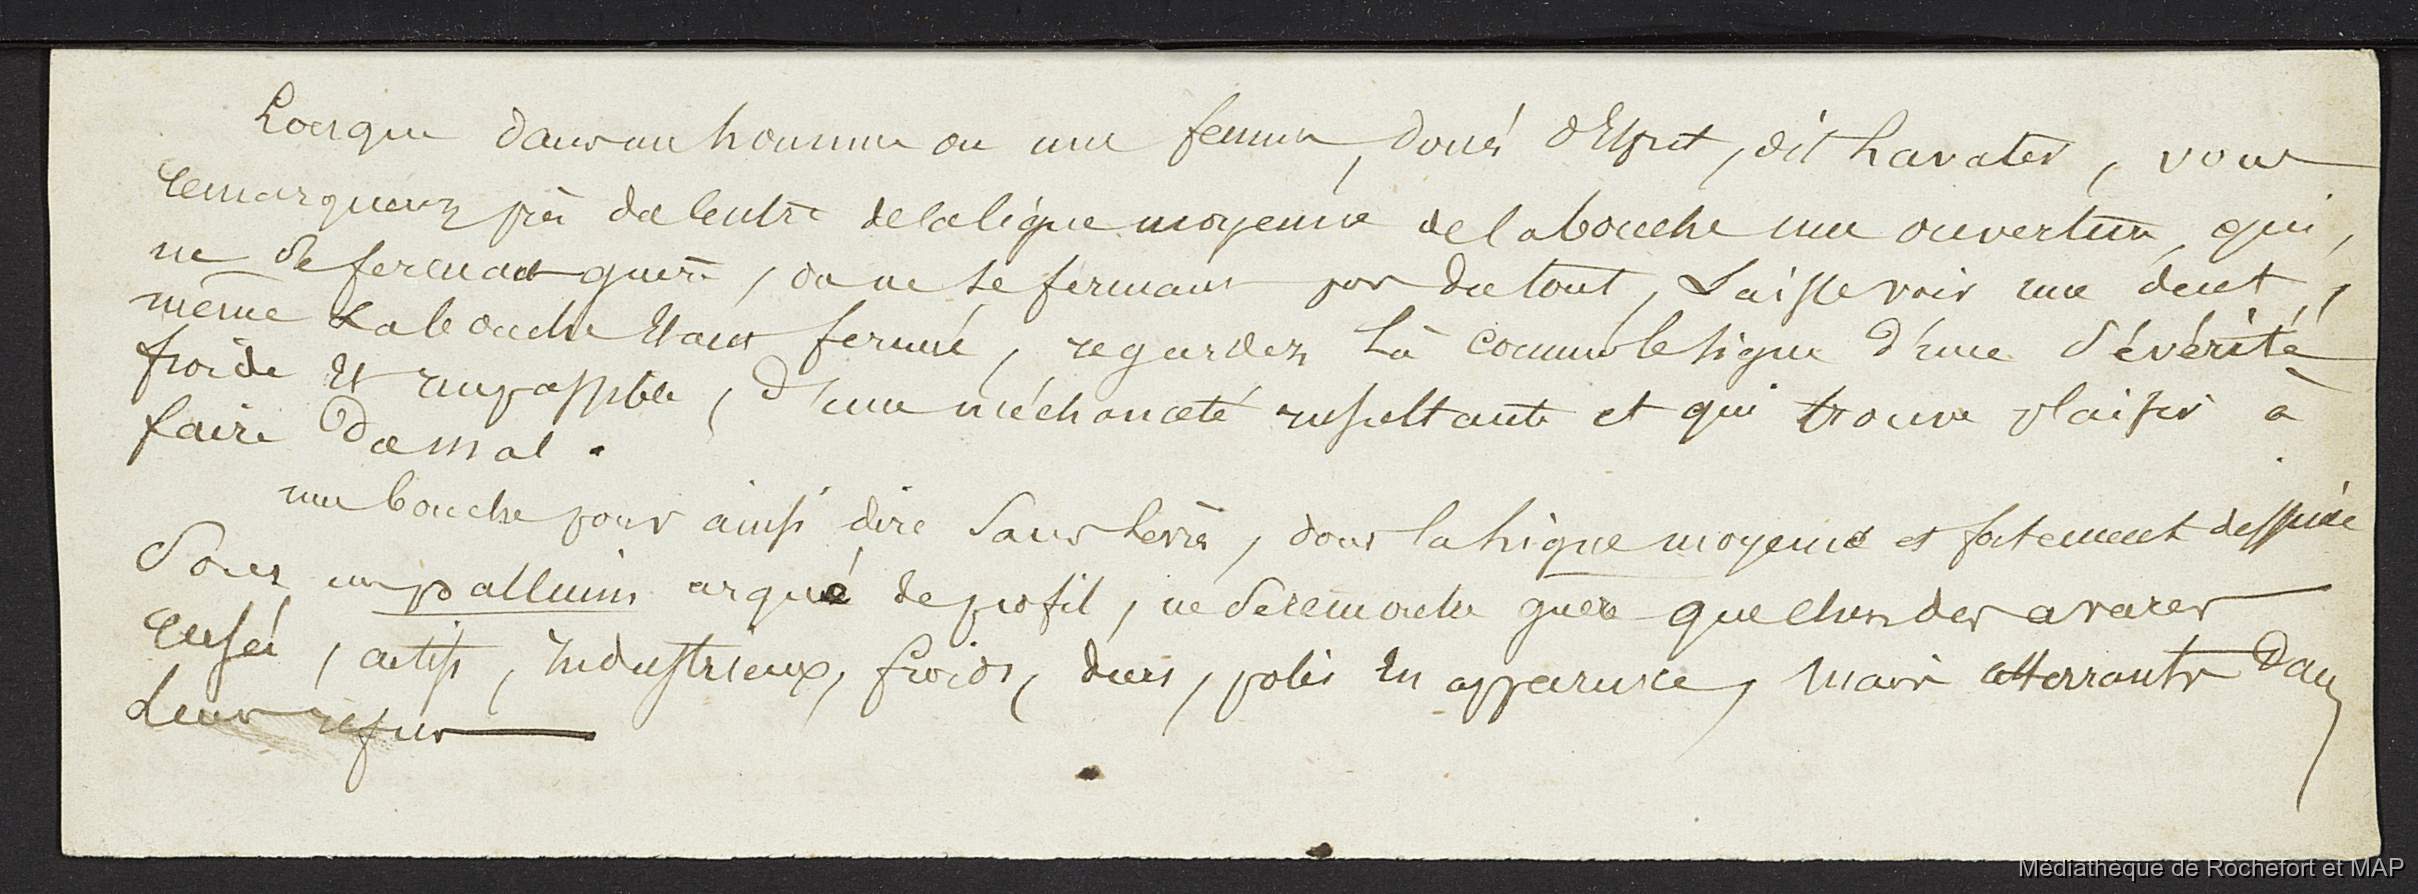 Lorsque dans un homme ou une femme, doués d'Esprit, dit Lavater, vous
remarquerez près du centre de la ligne moyenne de la bouche une ouverture, qui,
ne se fermant guère, ou ne se fermant pas du tout, Laisse voir une dent,
même La bouche étant fermée, regardez Là comme le signe d'une Sévérité
froide et impassible, d'une méchanceté insultante et qui trouve plaisir à
faire du mal.
une bouche pour ainsi dire Sans Lèvres, dont la Ligne moyenne est fortement dessinée
Sous un arqué de profil, ne Se remontre guère que chez des avares
rusés, actifs, industrieux, froids, durs, polis en apparence, mais atterrants Dans
Leurs refus
Médiathèque de Rochefort et MAP